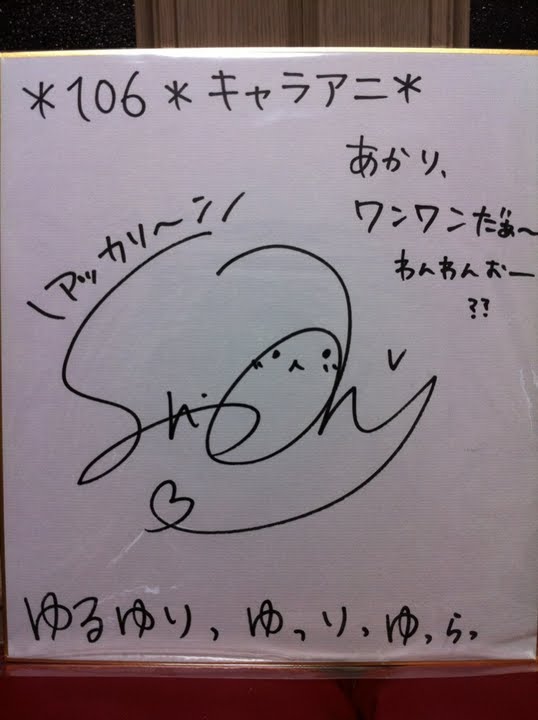 *106*キャラアニ*
あかり、
ワンワンだぁ〜
わんわんおー
??
\アッカリ〜ン/
ゆるゆり、ゆっり、ゆっら、